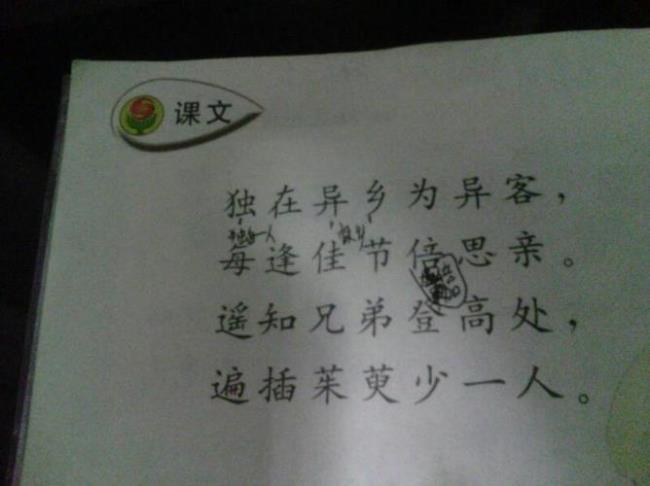 课文
独在异乡为异客，
每逢佳节倍思亲。
遥知兄弟登高处，
遍插茱萸少一人。